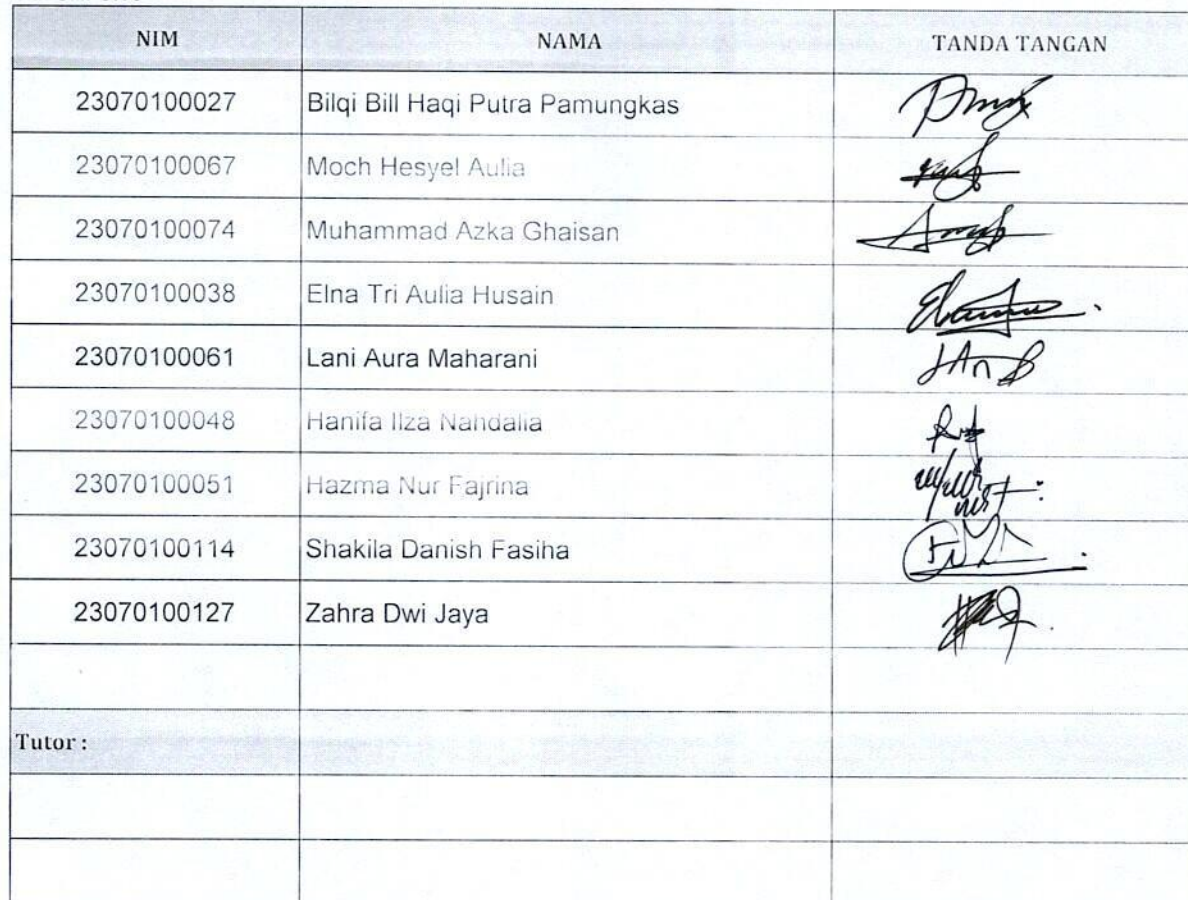 NIM NAMA TANDA TANGAN
23070100027 Bilqi Bill Haqi Putra Pamungkas
23070100067 Moch Hesyel Aulia
23070100074 Muhammad Azka Ghaisan
23070100038 Elna Tri Aulia Husain
23070100061 Lani Aura Maharani
23070100048 Hanifa Ilza Nahdalia
23070100051 Hazma Nur Fajrina
23070100114 Shakila Danish Fasiha
23070100127 Zahra Dwi Jaya
Tutor :